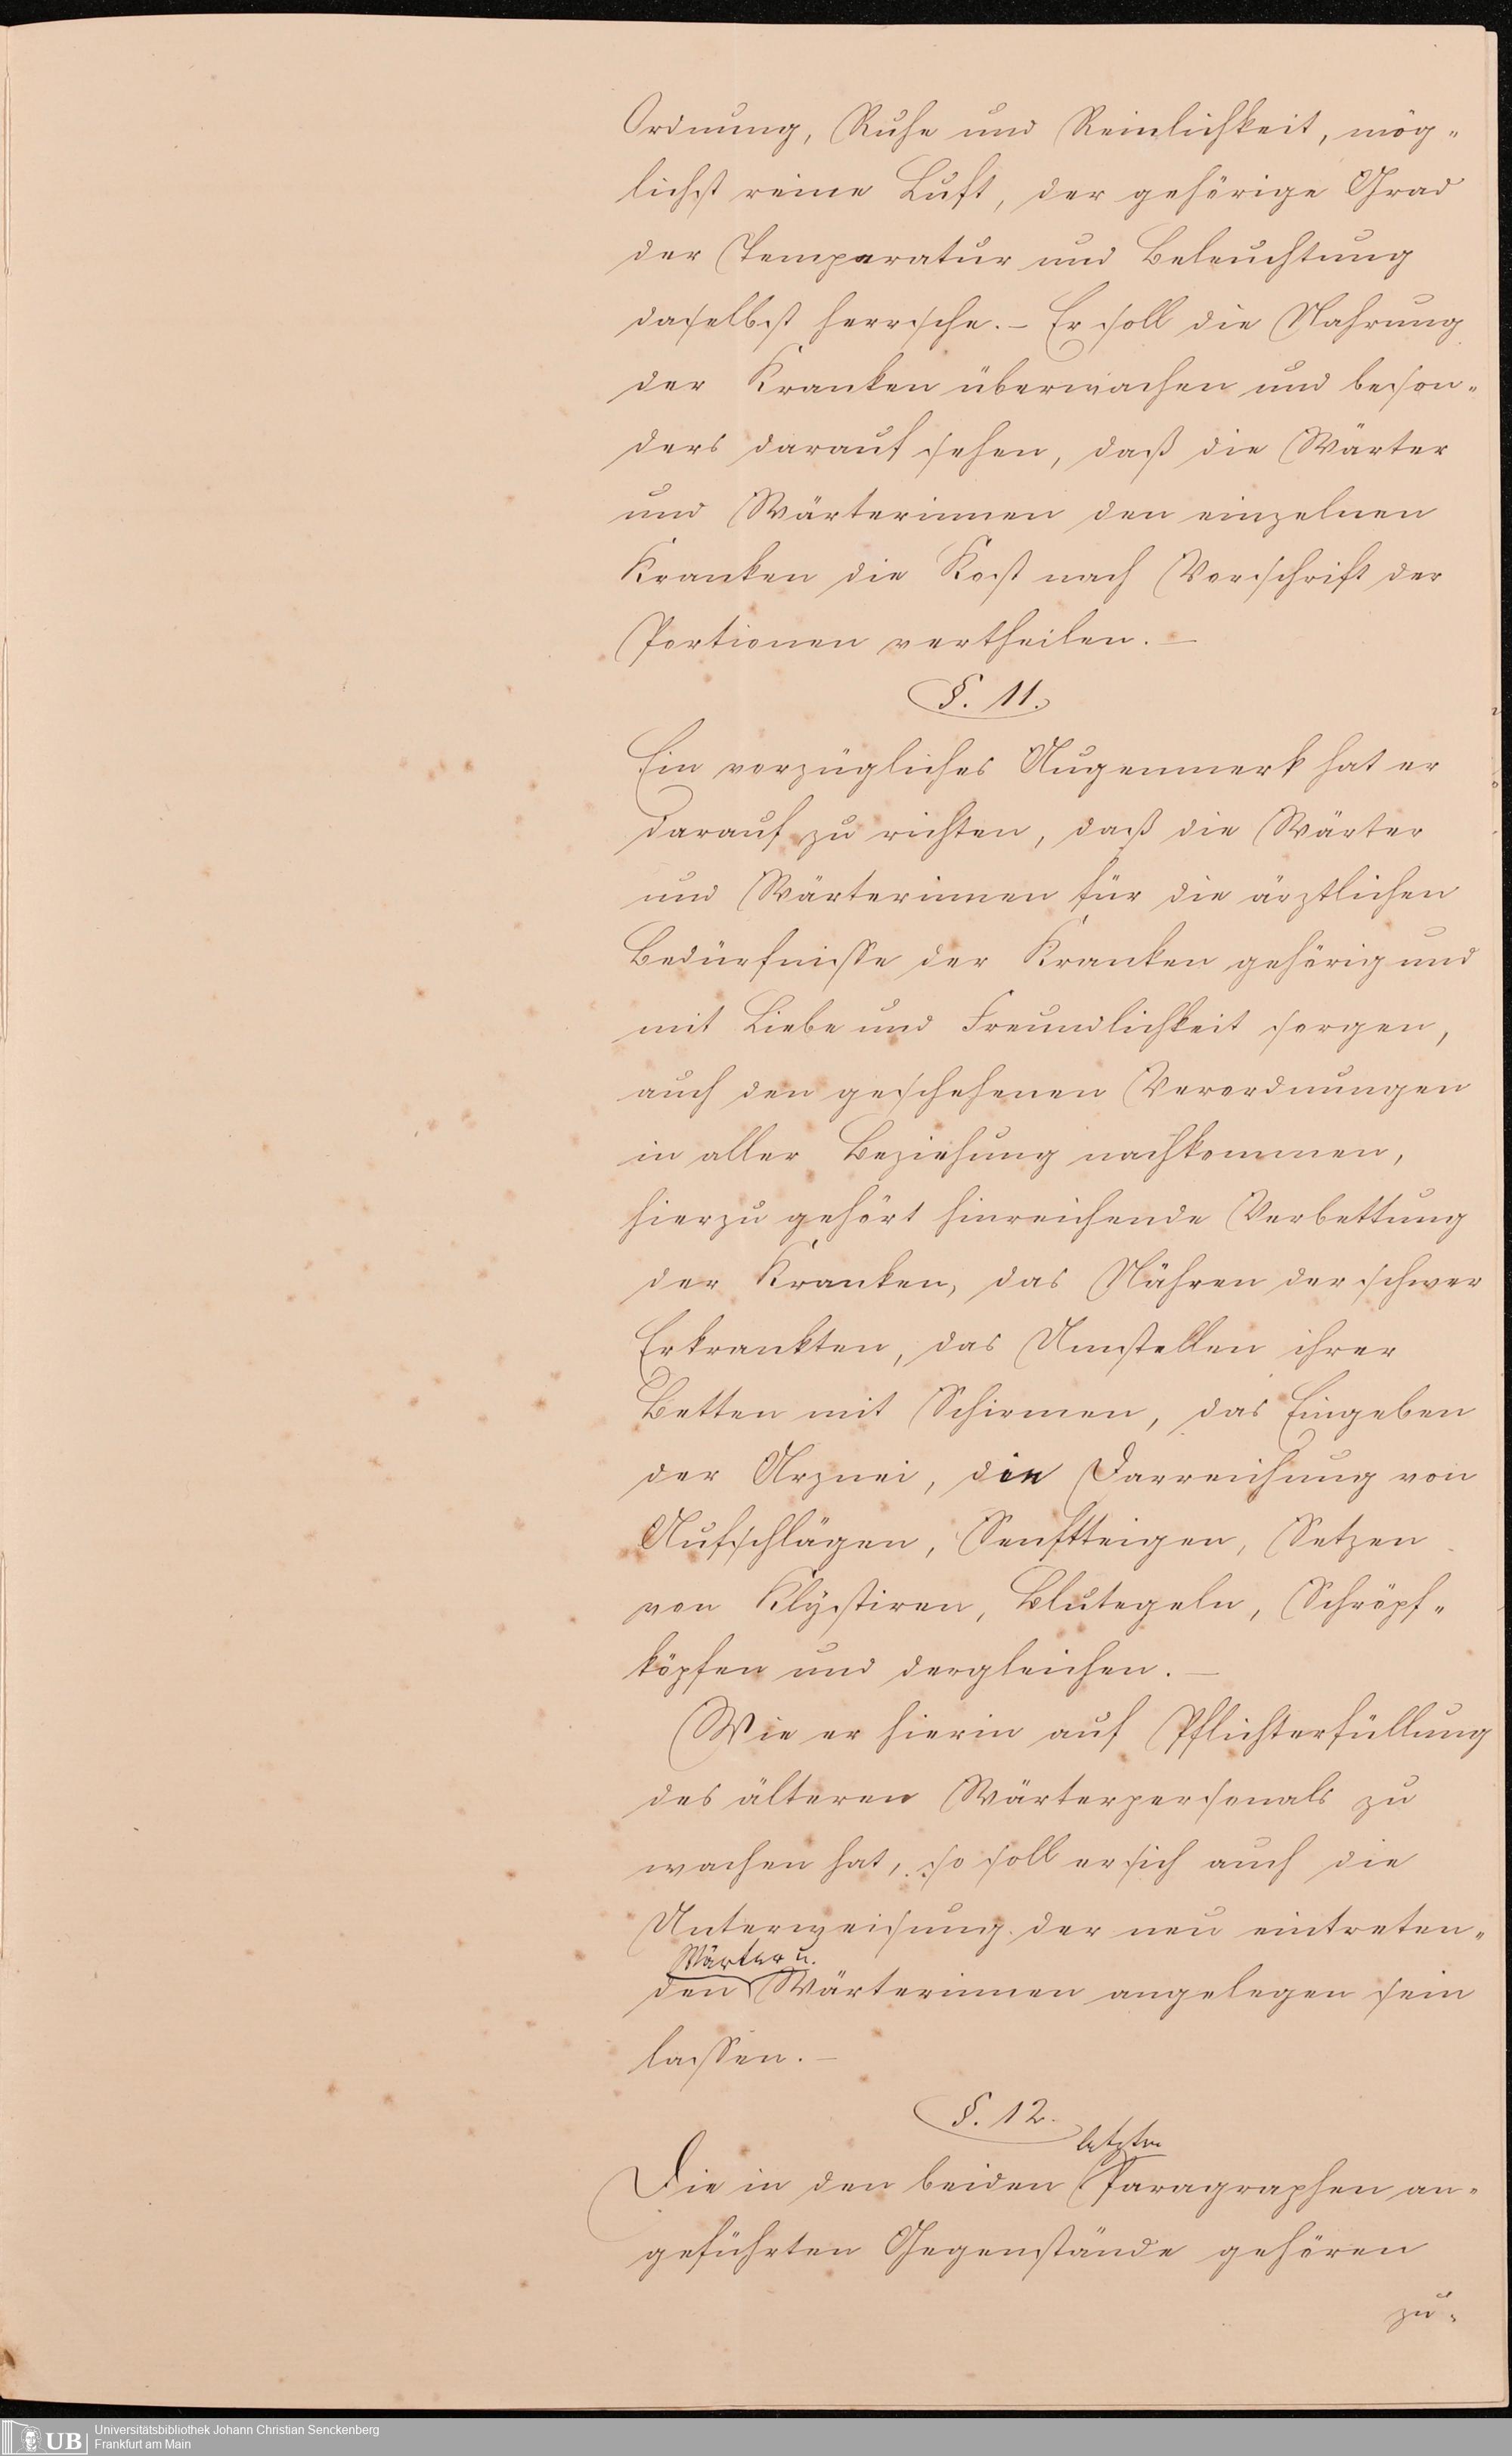 Ordnung, Ruhe und Reinlichkeit, mög-
lichst reine Luft, der gehörige Grad
der Temperatur und Beleuchtung
daselbst herrsche. – Er soll die Nahrung
der Kranken überwachen und beson-
ders darauf sehen, daß die Wärter
und Wärterinnen den einzelnen
Kranken die Kost nach Vorschrift der
Portionen vertheilen. –
§. 11.
Ein vorzügliches Augenmerk hat er
darauf zu richten, daß die Wärter
und Wärterinnen für die ärztlichen
Bedürfnisse der Kranken gehörig und
mit Liebe und Freundlichkeit sorgen,
auch den geschehenen Verordnungen
in aller Beziehung nachkommen,
hierzu gehört hinreichende Verbettung
der Kranken, das Nähren der schwer
Erkrankten, das Umstellen ihrer
Betten mit Schirmen, das Eingeben
der Arznei, die Darreichung von
Aufschlägen, Senftteigen, Setzen
von Klystiren, Blutegeln, Schröpf-
köpfen und dergleichen. –
Wie er hierin auf Pflichterfüllung
des älteren Wärterpersonals zu
wachen hat, so soll er sich auch die
Unterweisung der neu eintreten-
Wärter u.
den Wärterinnen angelegen sein
lassen. –
§. 12.
letzten
Die in den beiden Paragraphen an-
geführten Gegenstände gehören
zu-
UB
Universitätsbibliothek Johann Christian Senckenberg
Frankfurt am Main